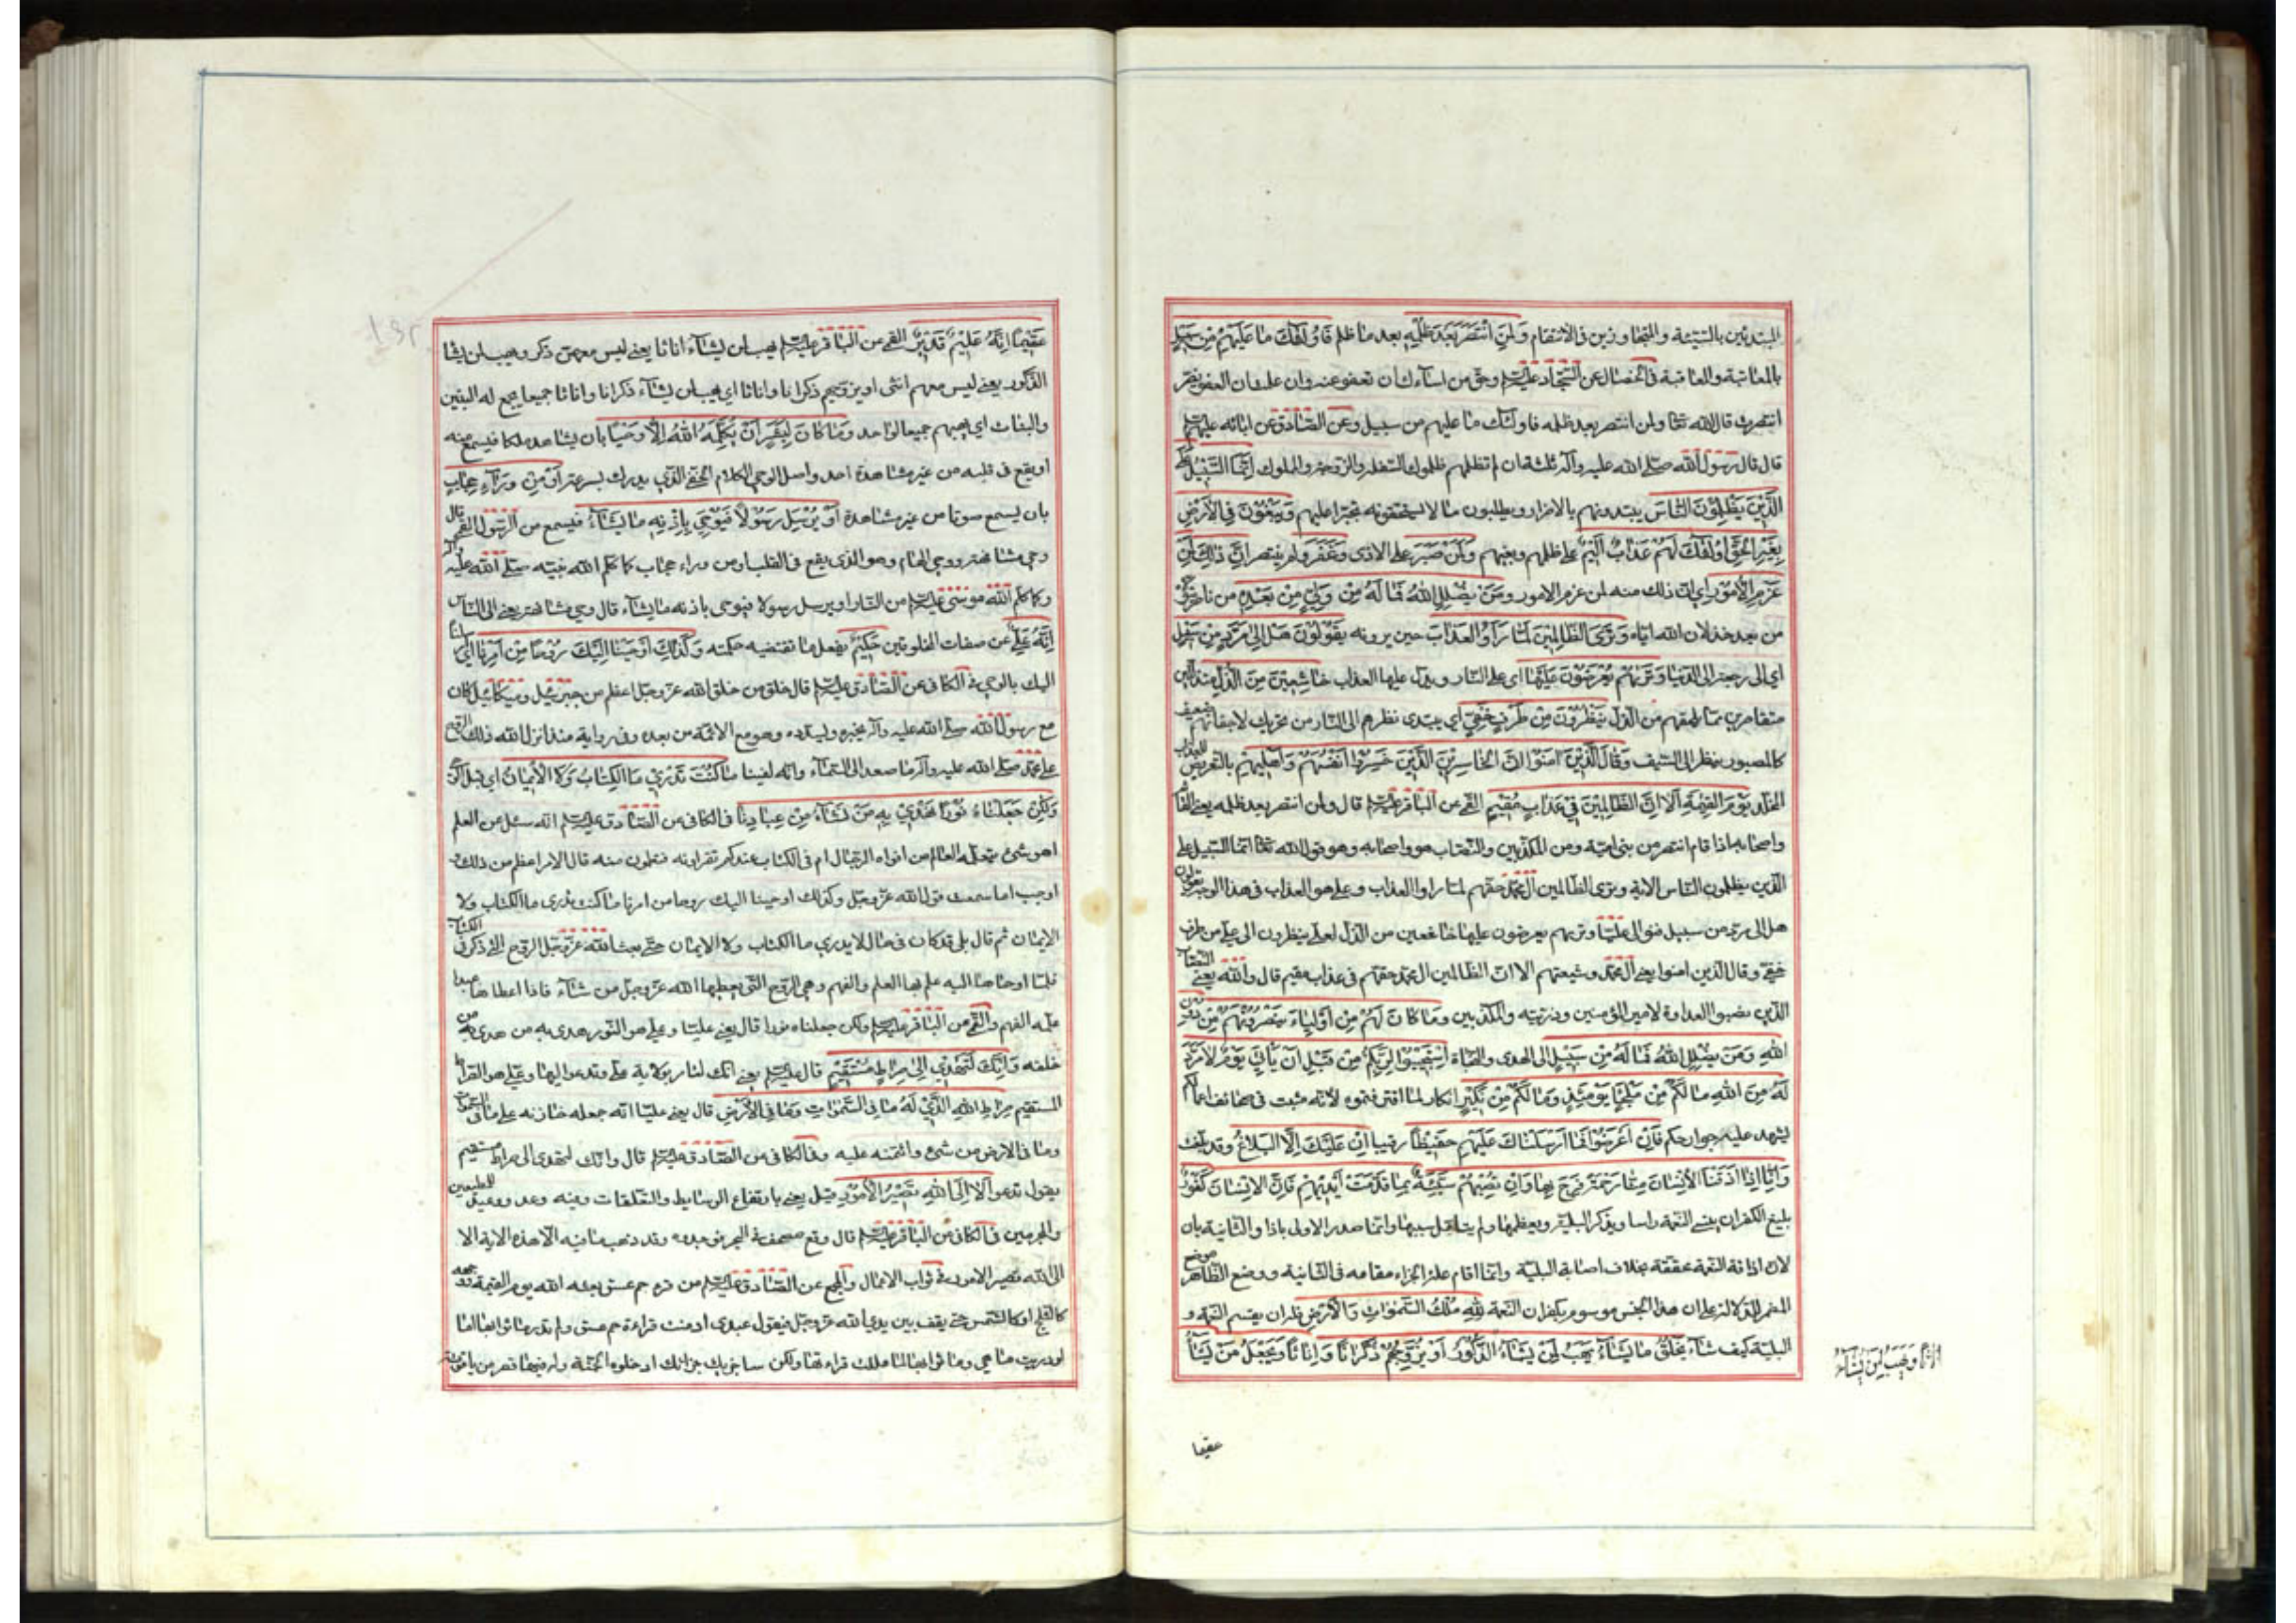 المبتدئين بالسيئة والمتجاوزين في الانتقام وَلَمَنِ انْتَصَرَ بَعْدَ ظُلْمِهِ بعد ما ظلم فَاُولٰئِكَ مَا عَلَيْهِمْ مِنْ سَبِيلٍ
بالمعاتبة والمعاقبة في الخصال عن السجاد عليه السلام وحق من اساءك ان تعفو عنه وان علمت ان العفو يضر
انتصرت قال الله تعالى ولمن انتصر بعد ظلمه فاولئك ما عليهم من سبيل وعن الصادق عن ابائه عليهم
قال قال رسول الله صلى الله عليه وآله ثلثة ان لم تظلمهم ظلموك السفلة والزوجة والمملوك اِنَّمَا السَّبِيلُ عَلَى
الَّذِينَ يَظْلِمُونَ النَّاسَ يبتدئونهم بالاضرار ويطلبون ما لا يستحقونه تجبرا عليهم وَيَبْغُونَ فِي الْاَرْضِ
بِغَيْرِ الْحَقِّ اُولٰئِكَ لَهُمْ عَذَابٌ اَلِيمٌ على ظلمهم وبغيهم وَلَمَنْ صَبَرَ على الاذى وَغَفَرَ ولم ينتصر اِنَّ ذٰلِكَ لَمِنْ
عَزْمِ الْاُمُورِ اي ان ذلك منه لمن عزم الامور وَمَنْ يُضْلِلِ اللهُ فَمَا لَهُ مِنْ وَلِيٍّ مِنْ بَعْدِهِ من ناصر
من بعد خذلان الله اياه وَتَرَى الظَّالِمِينَ لَمَّا رَاَوُا الْعَذَابَ حين يرونه يَقُولُونَ هَلْ اِلٰى مَرَدٍّ مِنْ سَبِيلٍ
اي الى رجعة الى الدنيا وَتَرٰيهُمْ يُعْرَضُونَ عَلَيْهَا اى على النار ويدل عليها العذاب خَاشِعِينَ مِنَ الذُّلِّ متذللين
متقاصرين مما يلحقهم من الذل يَنْظُرُونَ مِنْ طَرْفٍ خَفِيٍّ اي يبتدى نظرهم الى النار من تحريك لاجفانهم ضعيف
كالمصبور ينظر الى السيف وَقَالَ الَّذِينَ اٰمَنُوا اِنَّ الْخَاسِرِينَ الَّذِينَ خَسِرُوا اَنْفُسَهُمْ وَاَهْلِيهِمْ بالتعريض للعذاب
المخلد يَوْمَ الْقِيٰمَةِ اَلَا اِنَّ الظَّالِمِينَ فِي عَذَابٍ مُقِيمٍ القمي عن الباقر عليه السلام قال ولمن انتصر بعد ظلمه يعني القائم
واصحابه اذا قام انتصر من بني امية ومن المكذبين والنصاب هو واصحابه وهو قول الله تعالى انما السبيل على
الذين يظلمون الناس الاية وترى الظالمين ال محمد حقهم لما راوا العذاب وعلي هو العذاب في هذا الوجه يقولون
هل الى مرد من سبيل فنوالي عليا وتريهم يعرضون عليها خاشعين من الذل لعلي ينظرون الى علي من طرف
خفي وقال الذين امنوا يعني ال محمد وشيعتهم الا ان الظالمين ال محمد حقهم في عذاب مقيم قال والله يعني النصاب
الذين نصبوا العداوة لامير المؤمنين وذريته والمكذبين وَمَا كَانَ لَهُمْ مِنْ اَوْلِيَاءَ يَنْصُرُونَهُمْ مِنْ دُونِ
اللهِ وَمَنْ يُضْلِلِ اللهُ فَمَا لَهُ مِنْ سَبِيلٍ الى الهدى والنجاة اِسْتَجِيبُوا لِرَبِّكُمْ مِنْ قَبْلِ اَنْ يَاْتِيَ يَوْمٌ لَا مَرَدَّ
لَهُ مِنَ اللهِ مَا لَكُمْ مِنْ مَلْجَاٍ يَوْمَئِذٍ وَمَا لَكُمْ مِنْ نَكِيرٍ انكار لما اقترفتموه لانه مثبت في صحائف اعمالكم
يشهد عليه جوارحكم فَاِنْ اَعْرَضُوا فَمَا اَرْسَلْنَاكَ عَلَيْهِمْ حَفِيظًا رقيبا اِنْ عَلَيْكَ اِلَّا الْبَلَاغُ وقد بلغت
وَاِنَّا اِذَا اَذَقْنَا الْاِنْسَانَ مِنَّا رَحْمَةً فَرِحَ بِهَا وَاِنْ تُصِبْهُمْ سَيِّئَةٌ بِمَا قَدَّمَتْ اَيْدِيهِمْ فَاِنَّ الْاِنْسَانَ كَفُورٌ
بليغ الكفران ينسى النعمة راسا ويذكر البلية ويعظمها ولم يتامل سببها وانما صدر الاولى باذا والثانية بان
لان اذاقة النعمة محققة بخلاف اصابة البلية وانما اقام علة الجزاء مقامه في الثانية ووضع الظاهر موضع
المضمر للدلالة على ان هذا الجنس موسوم بكفران النعمة لِلّٰهِ مُلْكُ السَّمٰوَاتِ وَالْاَرْضِ فله ان يقسم النعمة و
البلية كيف شاء يَخْلُقُ مَا يَشَاءُ يَهَبُ لِمَنْ يَشَاءُ الذُّكُورَ اَوْ يُزَوِّجُهُمْ ذُكْرَانًا وَاِنَاثًا وَيَجْعَلُ مَنْ يَشَاءُ
اِنَاثًا وَيَهَبُ لِمَنْ يَشَاءُ
عقيما
عَقِيمًا اِنَّهُ عَلِيمٌ قَدِيرٌ القمي عن الباقر عليه السلام يهب لمن يشاء اناثا يعني ليس معهن ذكر ويهب لمن يشاء
الذكور يعني ليس معهم انثى او يزوجهم ذكرانا واناثا اي يهب لمن يشاء ذكرانا واناثا جميعا يجمع له البنين
والبنات اي يهبهم جميعا لواحد وَمَا كَانَ لِبَشَرٍ اَنْ يُكَلِّمَهُ اللهُ اِلَّا وَحْيًا بان يشاهد ملكا فيسمع منه
او يقع في قلبه من غير مشاهدة احد واصل الوحي الكلام الخفي الذي يدرك بسرعة اَوْ مِنْ وَرَاءِ حِجَابٍ
بان يسمع صوتا من غير مشاهدة اَوْ يُرْسِلَ رَسُولًا فَيُوحِيَ بِاِذْنِهِ مَا يَشَاءُ فيسمع من الرسول القمي قال
وحي مشافهة ووحي الهام وهو الذي يقع في القلب او من وراء حجاب كما كلم الله نبيه صلى الله عليه وآله
وكما كلم الله موسى عليه السلام من النار او يرسل رسولا فيوحى باذنه ما يشاء قال وحي مشافهة يعني الى الناس
اِنَّهُ عَلِيٌّ عن صفات المخلوقين حَكِيمٌ يفعل ما تقتضيه حكمته وَكَذٰلِكَ اَوْحَيْنَا اِلَيْكَ رُوحًا مِنْ اَمْرِنَا
اليك بالوحي في الكافي عن الصادق عليه السلام قال خلق من خلق الله عز وجل اعظم من جبرئيل وميكائيل كان
مع رسول الله صلى الله عليه وآله يخبره ويسدده وهو مع الائمة من بعده وفي رواية منذ انزل الله ذلك الروح
على محمد صلى الله عليه وآله ما صعد الى السماء وانه لفينا مَا كُنْتَ تَدْرِي مَا الْكِتَابُ وَلَا الْاِيمَانُ اي قبل الوحي
وَلٰكِنْ جَعَلْنَاهُ نُورًا نَهْدِي بِهِ مَنْ نَشَاءُ مِنْ عِبَادِنَا في الكافي عن الصادق عليه السلام انه سئل عن العلم
اهو شئ يتعلمه العالم من افواه الرجال ام في الكتاب عندكم تقراونه فتعلمون منه قال الامر اعظم من ذلك و
اوجب اما سمعت قول الله عز وجل وكذلك اوحينا اليك روحا من امرنا ما كنت تدري ما الكتاب ولا
الايمان ثم قال بلى قد كان في حال لا يدري ما الكتاب ولا الايمان حتى بعث الله عز وجل الروح التي ذكر في الكتاب
فلما اوحاها اليه علم بها العلم والفهم وهي الروح التي يعطيها الله عز وجل من شاء فاذا اعطاها عبدا
علمه الفهم والقمي عن الباقر عليه السلام ولكن جعلناه نورا قال يعني عليا وعلي هو النور هدى به من هدى به من
خلقه وَاِنَّكَ لَتَهْدِي اِلٰى صِرَاطٍ مُسْتَقِيمٍ قال عليه السلام يعني انك لتامر بولاية علي وتدعو اليها وعلي هو الصراط
المستقيم صِرَاطِ اللهِ الَّذِي لَهُ مَا فِي السَّمٰوَاتِ وَمَا فِي الْاَرْضِ قال يعني عليا انه جعله خازنه على ما في السموات
وما في الارض من شئ وائتمنه عليه وفي الكافي عن الصادق عليه السلام قال وانك لتهدى الى صراط مستقيم
يقول تدعو اَلَا اِلَى اللهِ تَصِيرُ الْاُمُورُ قيل يعني بارتفاع الوسايط والتعلقات وفيه وعد ووعيد للمطيعين
والمجرمين في الكافي عن الباقر عليه السلام قال وقع مصحف في البحر فوجدوه وقد ذهب ما فيه الا هذه الاية الا
الى الله تصير الامور في ثواب الاعمال والمجمع عن الصادق عليه السلام من قرء حم عسق بعثه الله يوم القيمة وجهه
كالثلج او كالشمس حتى يقف بين يدي الله عز وجل فيقول عبدي ادمنت قراءة حم عسق ولم تدر ما ثوابها اما
لو دريت ما هي وما ثوابها لما مللت قراءتها ولكن ساجزيك جزائك ادخلوه الجنة وله فيها قصر من ياقوتة